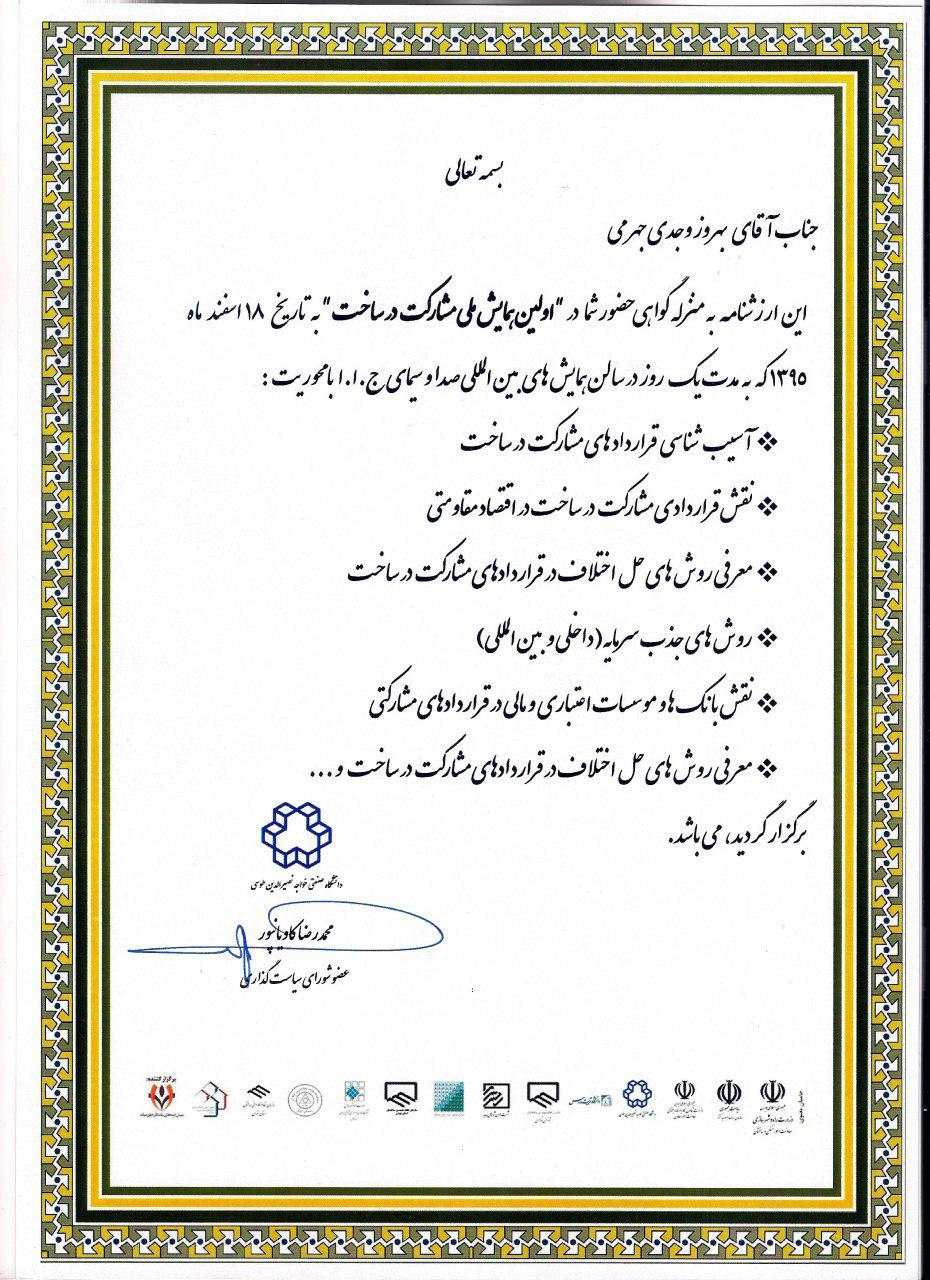 بسمه تعالی
جناب آقای بهروز وجدی جهرمی
این ارزشنامه به منزله گواهی حضور شما در "اولین همایش ملی مشارکت در ساخت" به تاریخ ۱۸ اسفند ماه
۱۳۹۵ که به مدت یک روز در سالن همایش های بین المللی صدا و سیمای ج.ا.ا با محوریت :
❖ آسیب شناسی قراردادهای مشارکت در ساخت
❖ نقش قراردادی مشارکت در ساخت در اقتصاد مقاومتی
❖ معرفی روش های حل اختلاف در قراردادهای مشارکت در ساخت
❖ روش های جذب سرمایه (داخلی و بین المللی)
❖ نقش بانک ها و موسسات اعتباری و مالی در قراردادهای مشارکتی
❖ معرفی روش های حل اختلاف در قراردادهای مشارکت در ساخت و...
برگزار گردید، می باشد.
دانشگاه صنعتی خواجه نصیرالدین طوسی
محمدرضا کاویانپور
عضو شورای سیاست گذاری
حامیان معنوی
برگزارکننده:
وزارت راه و شهرسازی